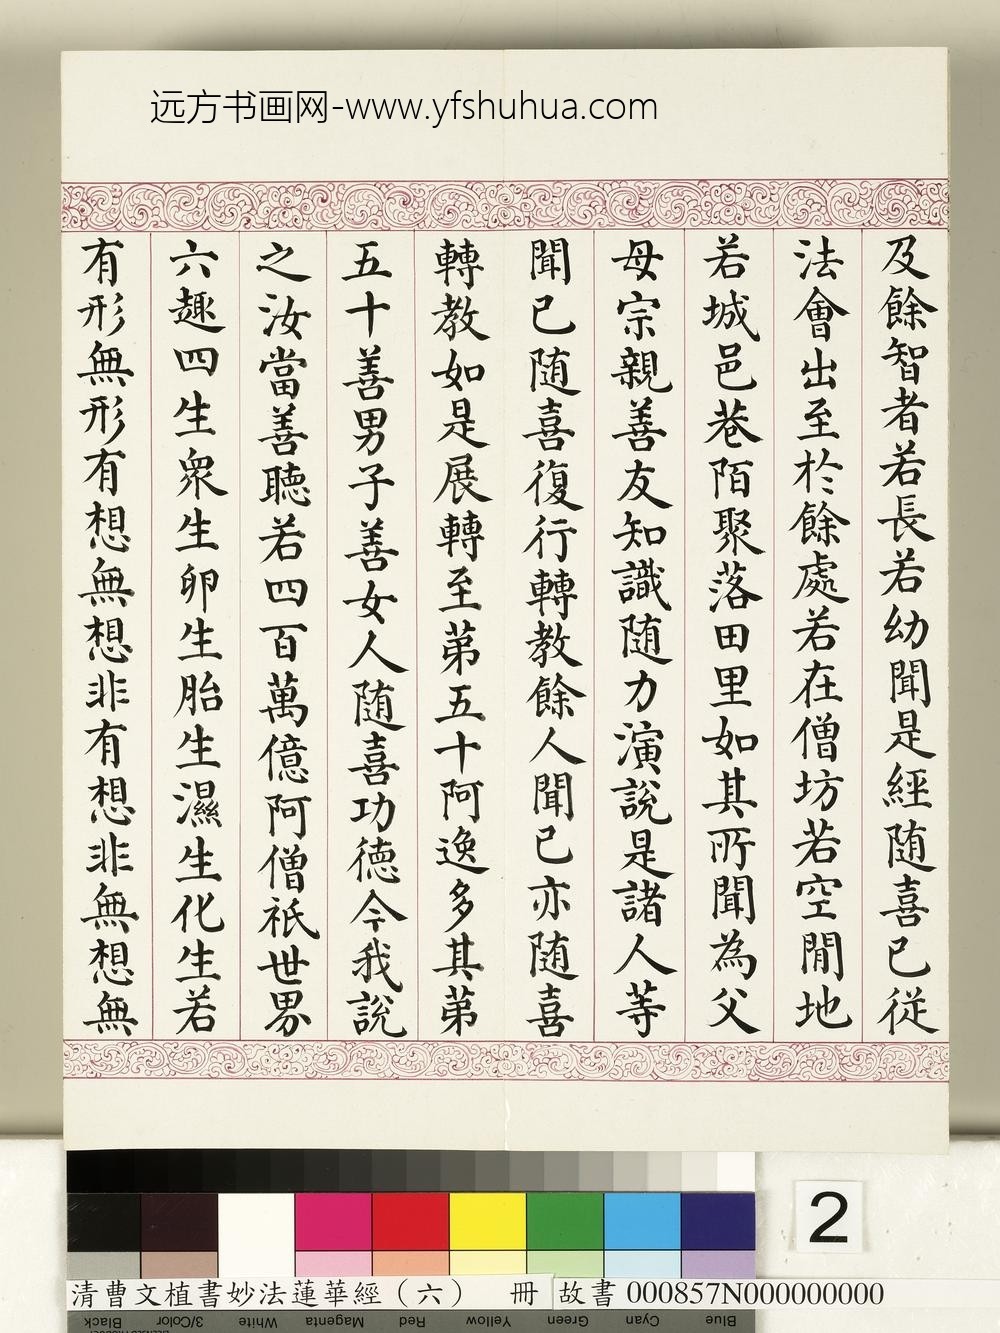 远方书画网-www.yfshuhua.com
及餘智者若長若幼聞是經随喜已從
法會出至於餘處若在僧坊若空閒地
若城邑巷陌聚落田里如其所聞為父
母宗親善友知識随力演說是諸人等
聞已随喜復行轉教餘人聞已亦随喜
轉教如是展轉至第五十阿逸多其第
五十善男子善女人随喜功德今我說
之汝當善聽若四百萬億阿僧祇世界
六趣四生衆生卵生胎生濕生化生若
有形無形有想無想非有想非無想無
2
清曹文植書妙法蓮華經（六） 冊 故書 000857N000000000
Black 3/Color White Magenta Red Yellow Green Cyan Blue